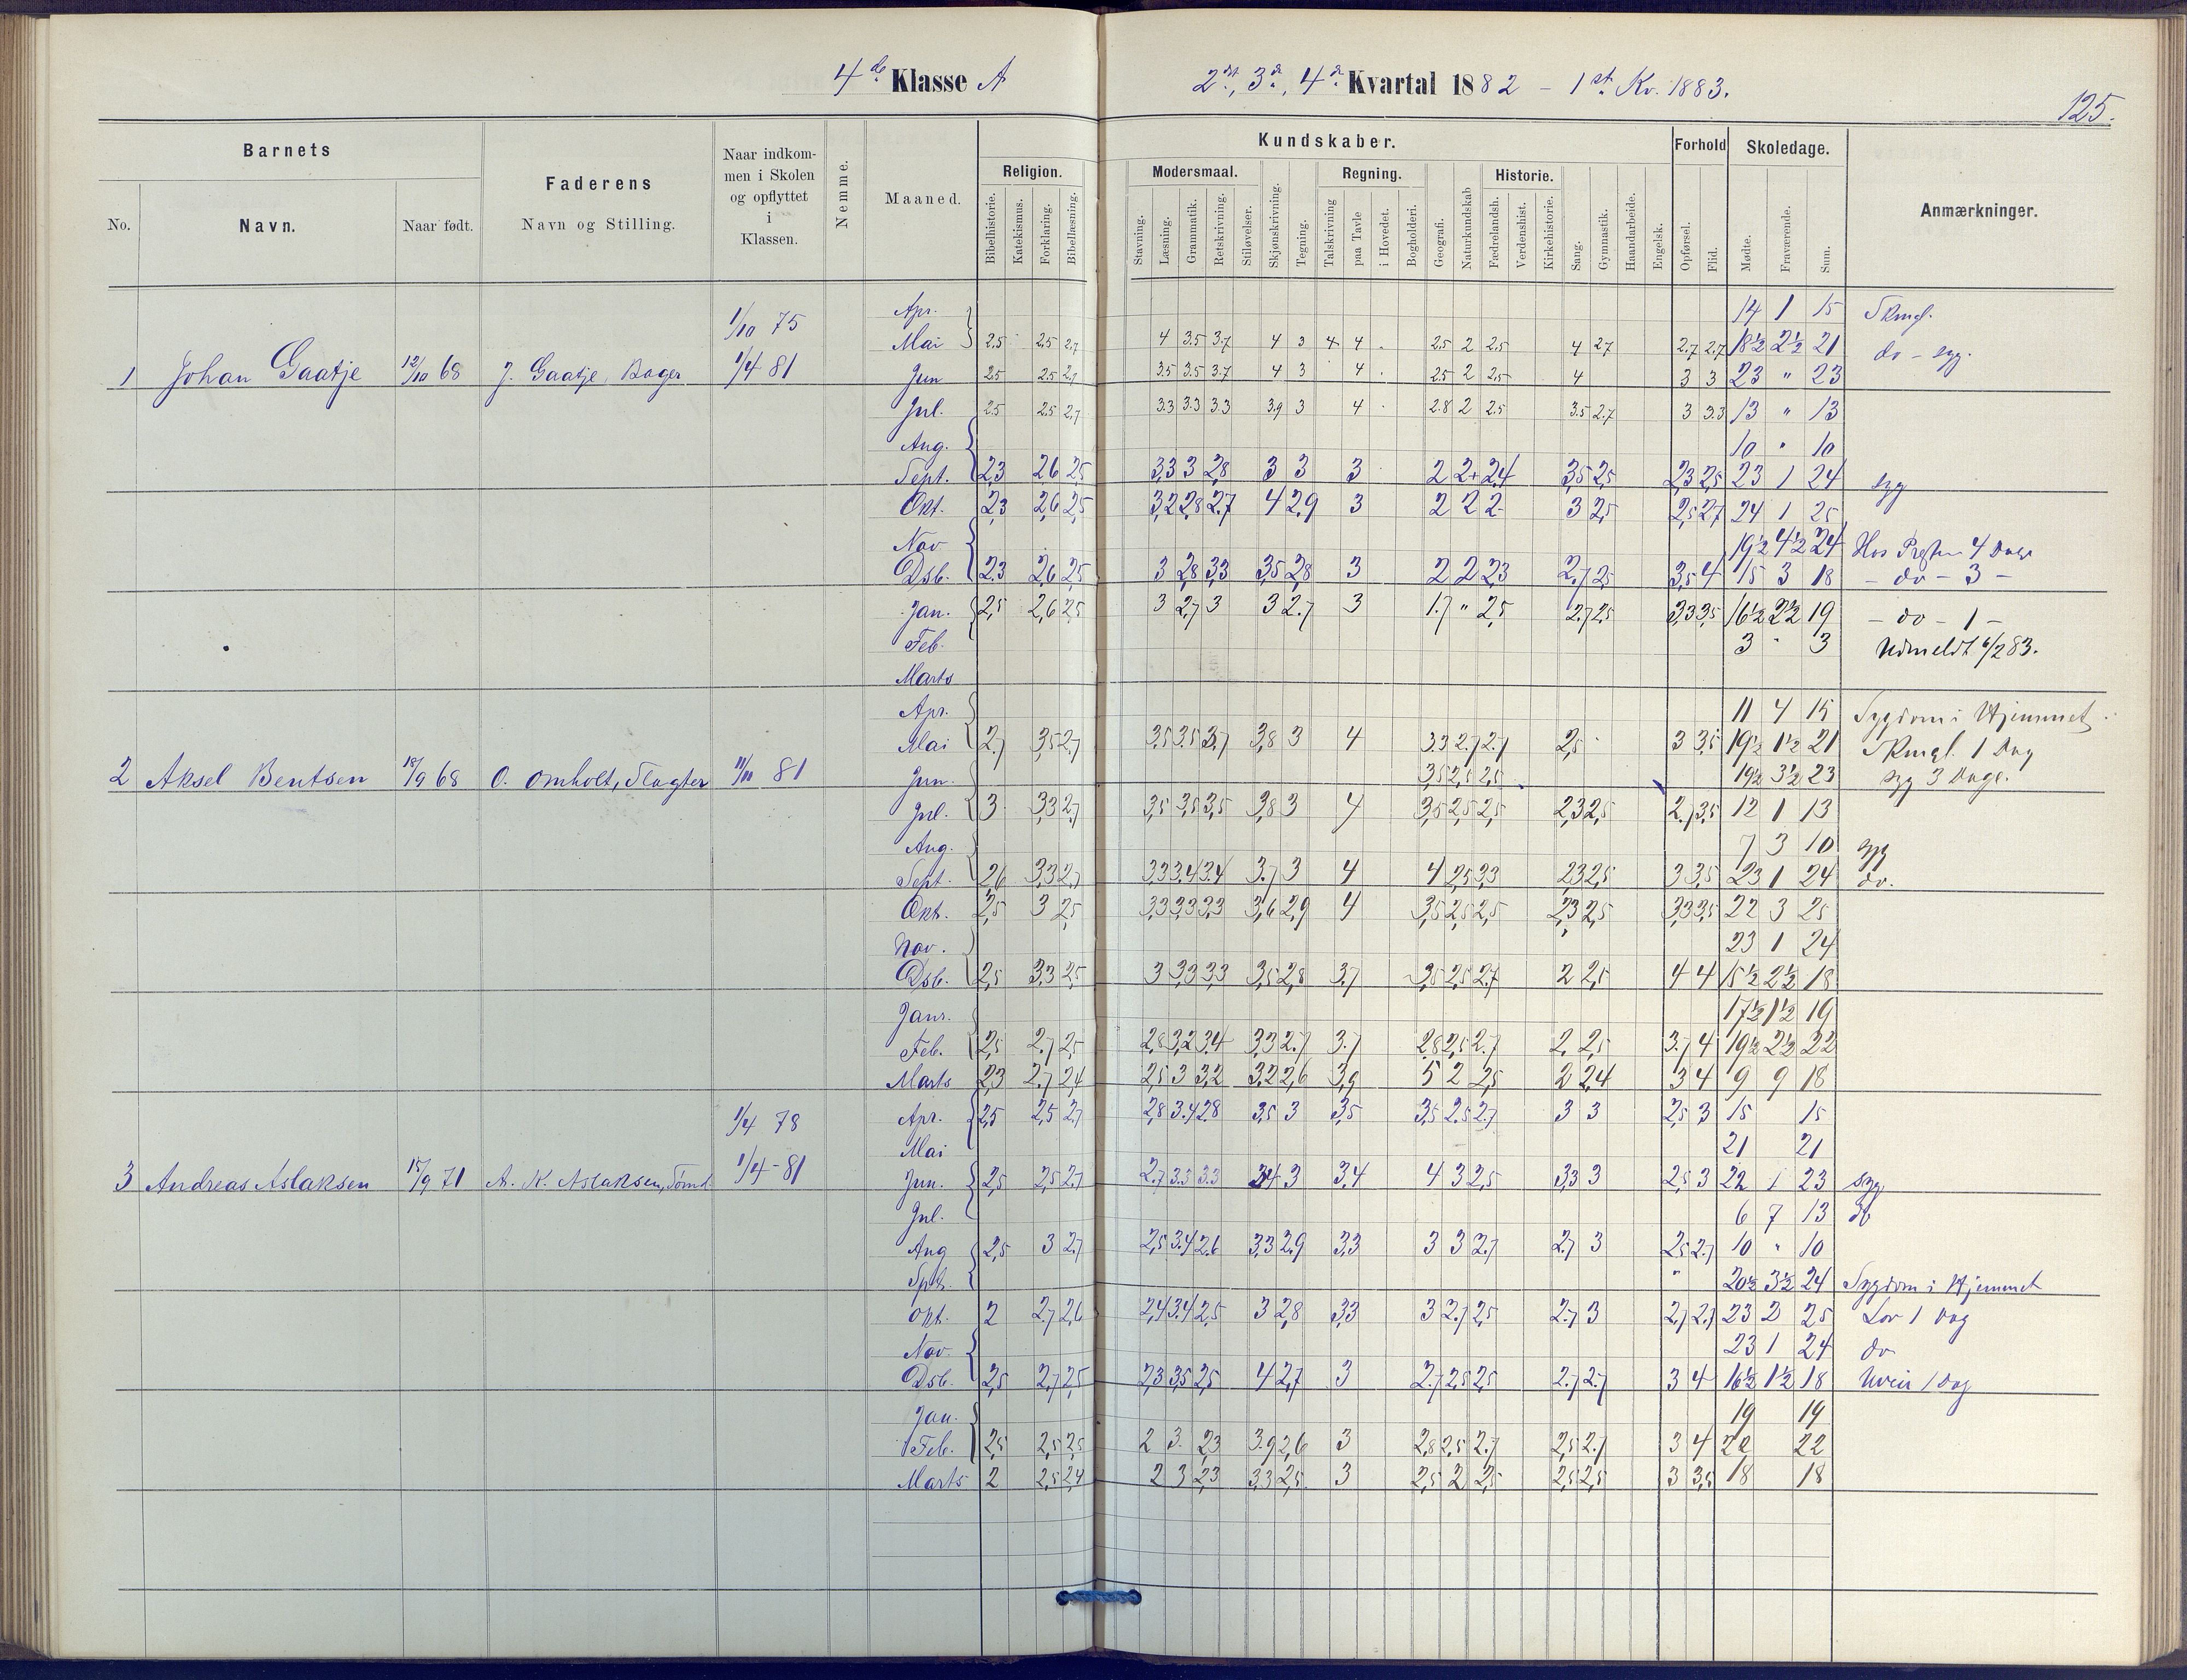 4de Klasse A
2det, 3de, 4de Kvartal 1882 – 1st. Kv. 1883.
125.
Barnets
No.
Navn.
Naar født.
Faderens
Navn og Stilling.
Naar indkom-
men i Skolen
og opflyttet
i
Klassen.
Nemme.
Maaned.
Kundskaber.
Religion.
Bibelhistorie.
Katekismus.
Forklaring.
Bibellæsning.
Modersmaal.
Stavning.
Læsning.
Grammatik.
Retskrivning.
Stiløvelser.
Skjønskrivning.
Tegning.
Regning.
Talskrivning
paa Tavle
i Hovedet.
Bogholderi.
Geografi.
Naturkundskab
Historie.
Fædrelandsh.
Verdenshist.
Kirkehistorie.
Sang.
Gymnastik.
Haandarbeide.
Engelsk.
Forhold
Opførsel.
Flid.
Skoledage.
Mødte.
Fraværende.
Sum.
Anmærkninger.
1/10 75
Apr. 14 1 15 Skmgl.
Mai 2.5 2.5 2.7 4 3.5 3.7 4 3 4 4 2.5 2 2.5 4 2.7 2.7 2.7 18½ 2½ 21 do – syg.
1 Johan Gaatje 12/10 68 J. Gaatje, Bager 1/4 81 Jun 2.5 2.5 2.7 3.5 3.5 3.7 4 3 4 2.5 2 2.5 4 3 3 23 " 23
Jul. 2.5 2.5 2.7 3.3 3.3 3.3 3.9 3 4 2.8 2 2.5 3.5 2.7 3 3.3 13 " 13
Aug. 10 " 10
Sept. 2,3 2,6 2,5 3,3 3 2,8 3 3 3 2 2+ 2,4 3,5 2,5 2,3 2,5 23 1 24 syg
Okt. 2,3 2,6 2,5 3,2 2,8 2,7 4 2,9 3 2 2 2- 3 2,5 2,5 2,7 24 1 25
Nov 19½ 4½ 24 Hos Presten 4 Dage
Dsb. 2,3 2,6 2,5 3 2,8 3,3 3,5 2,8 3 2 2 2,3 2,7 2,5 3,5 4 15 3 18 – do – 3 –
Jan. 2,5 2,6 2,5 3 2,7 3 3 2.7 3 1.7 " 2,5 2.7 2,5 3,3 3,5 16½ 2½ 19 – do – 1 –
Feb. 3 " 3 Udmeldt 6/2 83.
Marts
Apr. 11 4 15 Sygdom i Hjemmet
Mai 2.7 3,5 2.7 3,5 3.5 3.7 3,8 3 4 3.3 2.7 2.7 2,5 3 3,5 19½ 1½ 21 Skmgl. 1 Dag
2 Aksel Bentsen 18/9 68 O. Omholt, Slagter 11/11 81 Jun. 3,5 2,5 2,5 19½ 3½ 23 syg 3 Dage.
Jul. 3 3,3 2,7 3,5 3,5 3,5 3,8 3 4 3,5 2,5 2,5 2,3 2,5 2.7 3,5 12 1 13
Aug. 7 3 10 syg
Sept. 2,6 3,3 2,7 3,3 3,4 3,4 3.7 3 4 4 2,5 3,3 2,3 2,5 3 3,5 23 1 24 do.
Okt. 2,5 3 2,5 3,3 3,3 3,3 3,6 2,9 4 3,5 2,5 2,5 2,3 2,5 3,3 3,5 22 3 25
Nov. 23 1 24
Dsb. 2,5 3,3 2,5 3 3,3 3,3 3,5 2,8 3,7 3,5 2,5 2.7 2 2,5 4 4 15½ 2½ 18
Janr. 17½ 1½ 19
Feb. 2,5 2.7 2,5 2,8 3,2 3,4 3,3 2.7 3.7 2,8 2,5 2.7 2. 2,5 3.7 4 19½ 2½ 22
Marts 2,3 2.7 2,4 2,5 3 3,2 3,2 2,6 3,9 5 2 2,5 2 2,4 3 4 9 9 18
1/4 78 Apr. 2,5 2,5 2,7 2,8 3.4 2.8 3,5 3 3,5 3,5 2.5 2.7 3 3 2,5 3 15 15
Mai 21 21
3 Andreas Aslaksen 15/9 71 A. K. Aslaksen, Tømd 1/4 – 81 Jun. 2,5 2,5 2,7 2.7 3.3 3.3 3,4 3 3,4 4 3 2,5 3,3 3 2,5 3 22 1 23 syg
Jul. 6 7 13 do
Aug 2,5 3 2.7 2,5 3.4 2.6 3,3 2.9 3,3 3 3 2.7 2.7 3 2,5 2.7 10 " 10
Spt. 20½ 3½ 24 Sygdom i Hjemmet
Okt. 2 2.7 2,6 2,4 3.4 2.5 3 2,8 3,3 3 2.7 2,5 2.7 3 2,7 2.7 23 2 25 Lov 1 Dag
Nov. 23 1 24 do
Dsb. 2,5 2,7 2,5 2,3 3,5 2,5 4 2,7 3 2.7 2,5 2,5 2.7 2.7 3 4 16½ 1½ 18 Uveir 1 Dag
Jan. 19 19
Feb. 2,5 2,5 2,5 2 3. 2,3 3.9 2,6 3 2,8 2,5 2.7 2,5 2.7 3 4 22 22
Marts 2 2,5 2,4 2 3 2,3 3,3 2,5 3 2,5 2 2,5 2,5 2,5 3 3,5 18 18